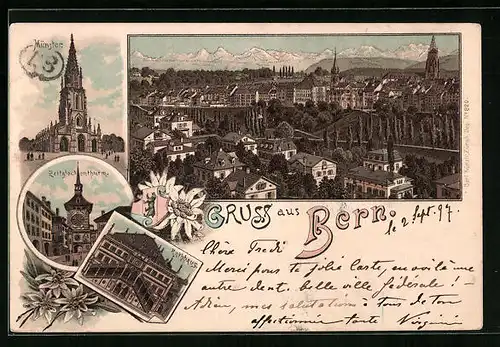 Münster
13
Zeitglockenthurm
Rathhaus
GRUSS aus Bern.
le 2 Sept. 97
Chère Fredi
Merci pour ta jolie carte, en voilà une
autre dont. belle ville fédérale! –
Adieu, mes salutations à tous de ton
affectionnée tante Virginie